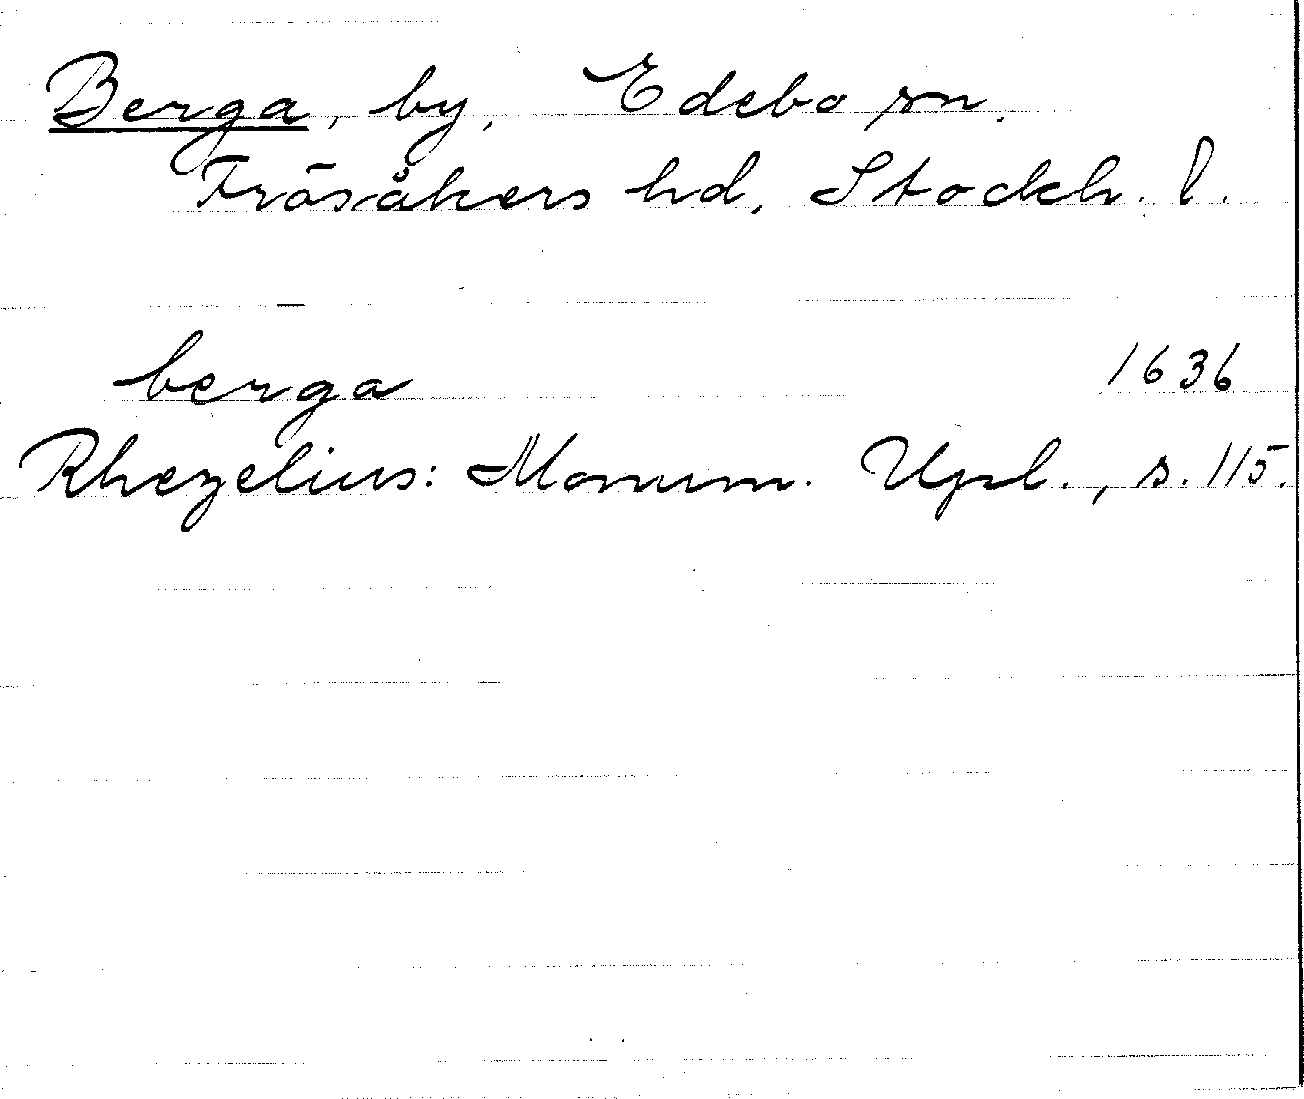 Berga, by, Edebo sn.
Frösåkers hd, Stockh. l.
berga 1636
Rhezelius: Monum. Upl., s. 115.